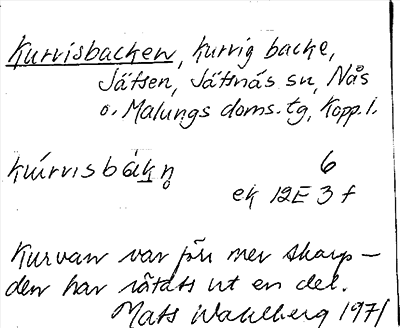 Kurvisbacken, kurvig backe,
Jätsen, Jättnäs sn, Nås
o. Malungs doms. tg, Kopp. l.
kúrvisbàkn̥ 6
ek 12E 3 f
Kurvan var förr mer skarp –
den har rätats ut en del.
Mats Wahlberg 1971